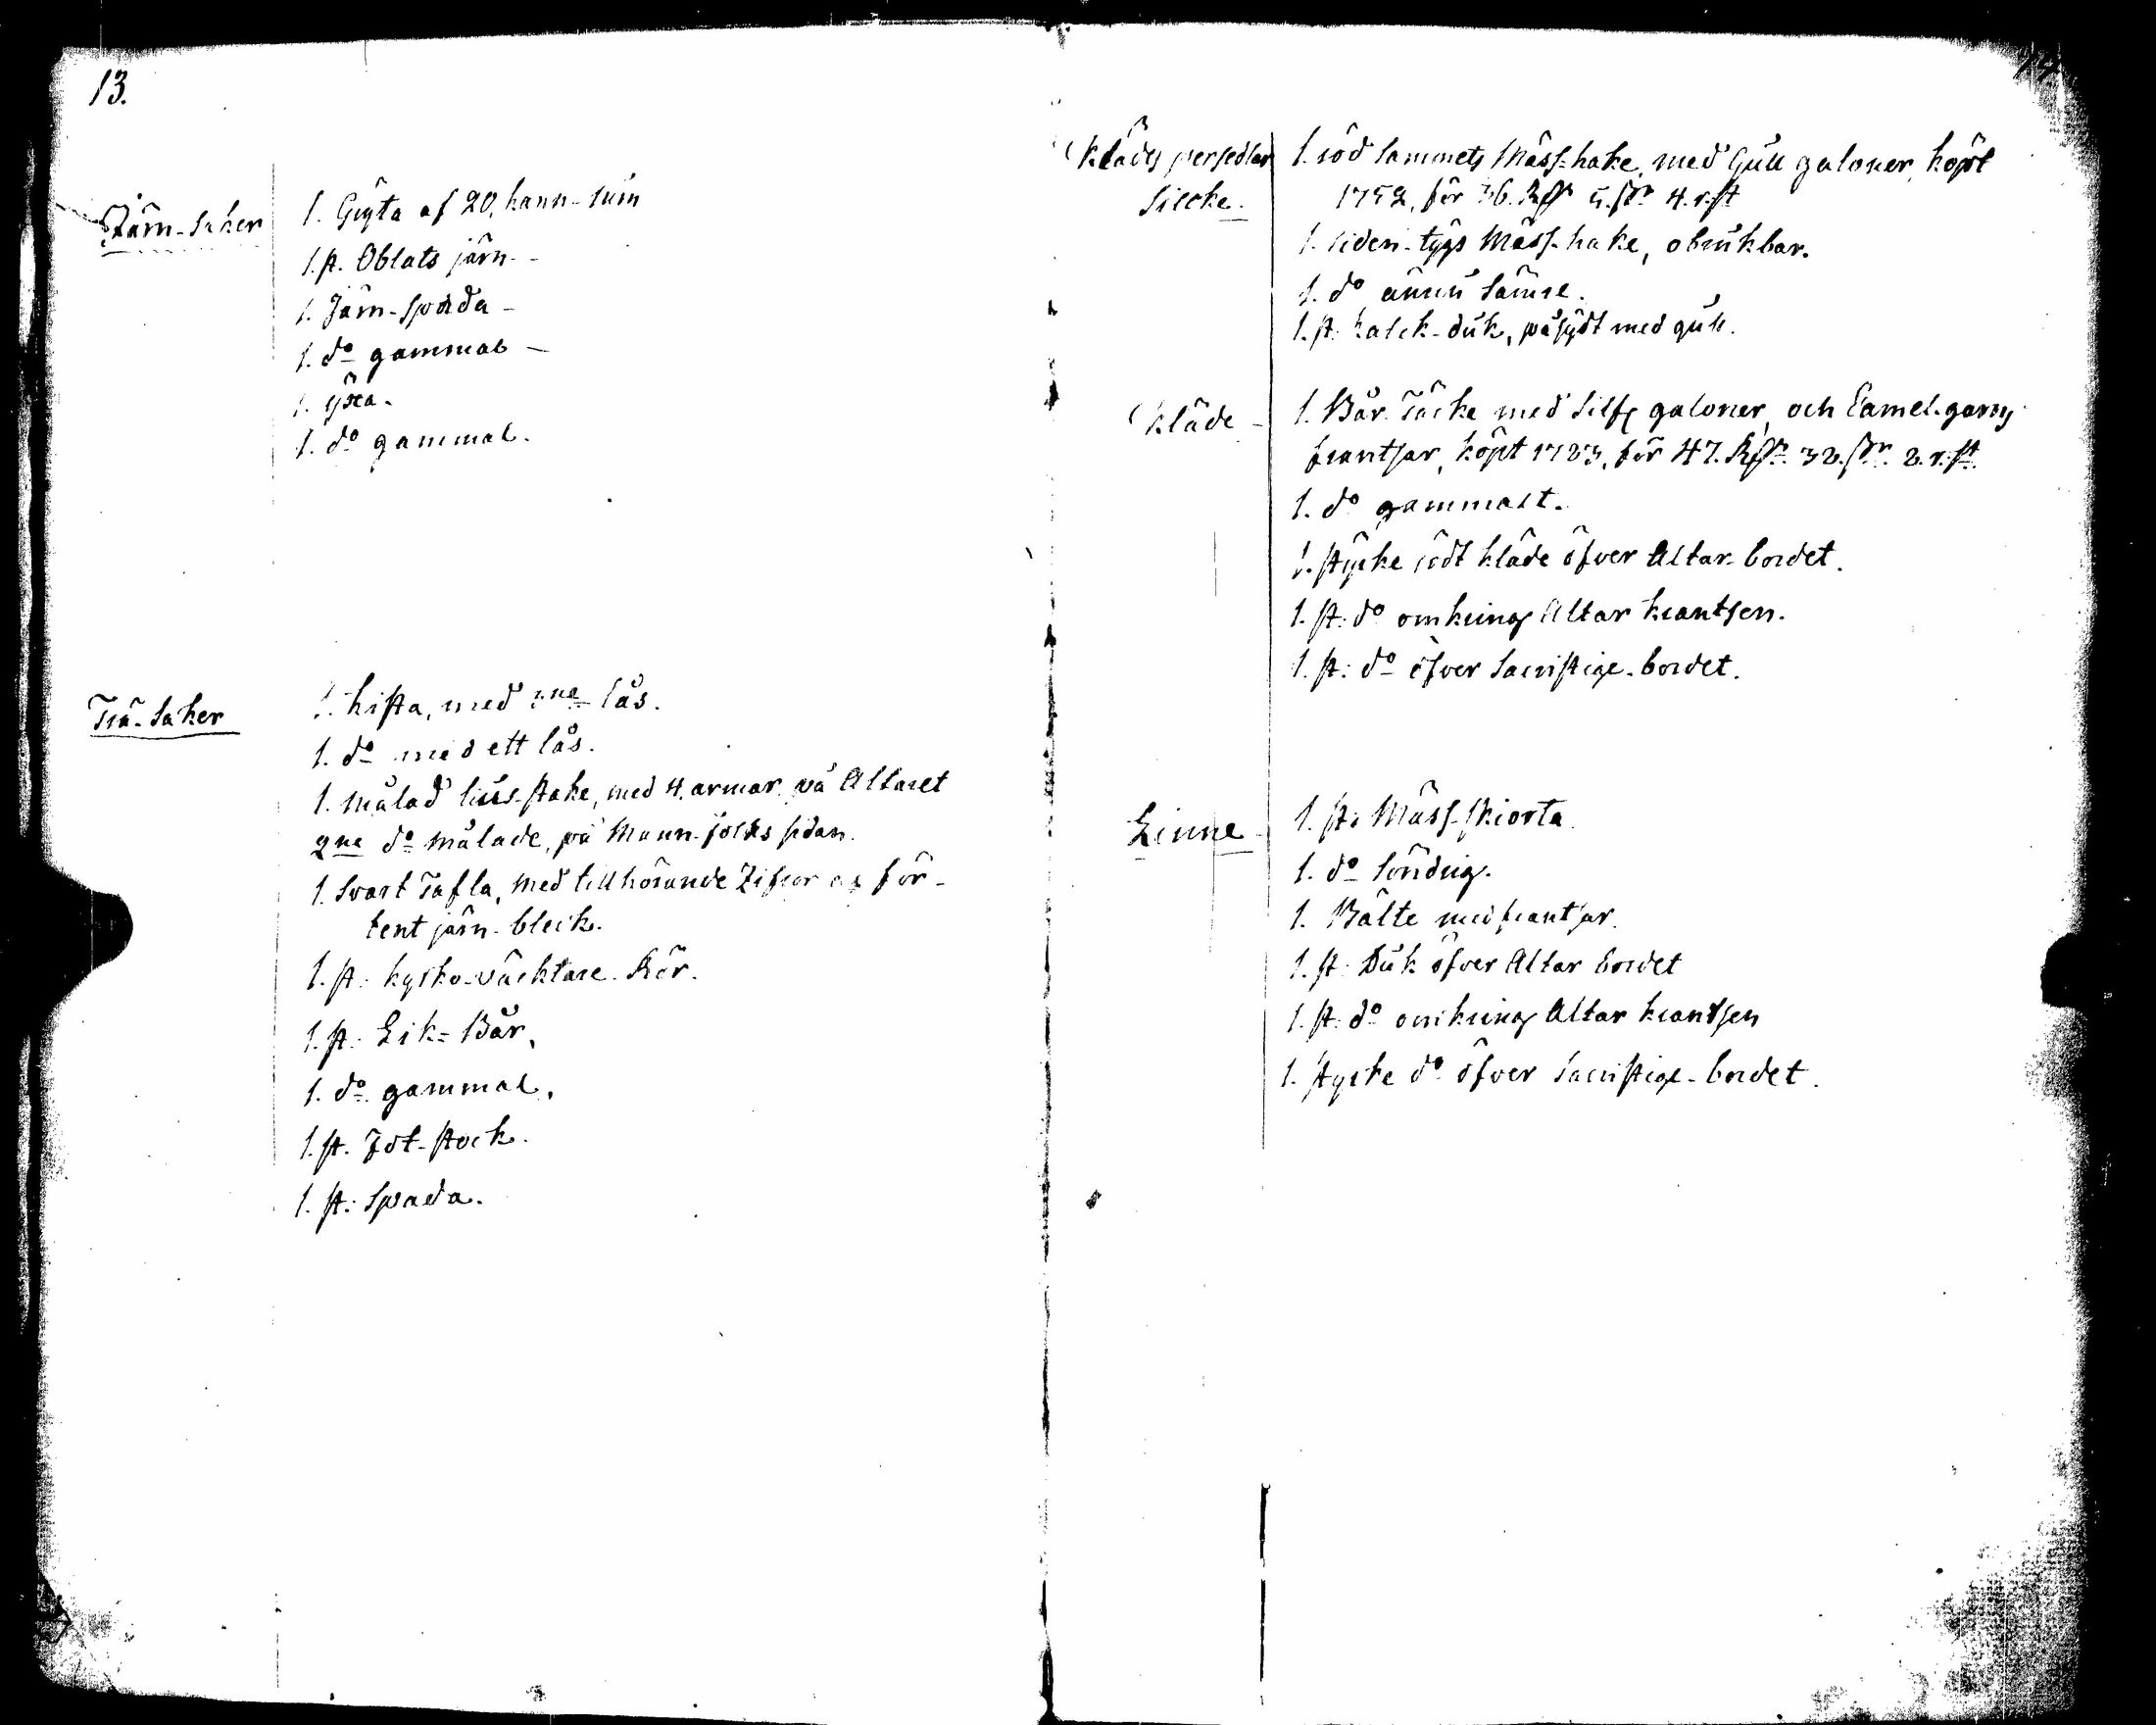 13.
Järn-saker
1. Gryta af 20. kann-rum
1. st. Oblats järn -
1. Järn-spada -
1. do gammal -
1. yxa.
1. do gammal.
Trä-saker
1. kista, med 2ne lås.
1. do med ett lås.
1. målad lius-stake, med 4. armar på Altaret
2ne do målade, på Mann-folks sidan.
1. svart Tafla, med tillhörande Zifror af för-
tent järn-bleck.
1. st: kyrko-väcktare-Rör.
1. st: Lik-Bår,
1. do gammal.
1. st. Fot-stock.
1. st: Spada.
14
Kläds persedlar
Silcke.
1. röd sammets Mäss-hake, med Gull galoner, köpt
1752, för 36. Rdr 5. sk. 4. r. st
1. siden-tygs Mäss-hake, obrukbar.
1. do ännu sämre.
1. st: kalck-duk, påsydt med gull.
Kläde -
1. Bår-Täcke med Silfr galoner, och Camel-garns
frantsar, köpt 1783, för 47. Rdr 32. sk. 2. r. st.
1. do gammalt.
1. stycke rödt kläde öfver Altar-bordet.
1. st: do omkring Altar krantsen.
1. st: do öfver Sacristige-bordet.
Linne -
1. st: Mäss-skiorta.
1. do söndrig.
1. Bälte med frantsar.
1. st: Duk öfver Altar bordet
1. st: do omkring Altar krantsen
1. stycke do öfver Sacristige-bordet.